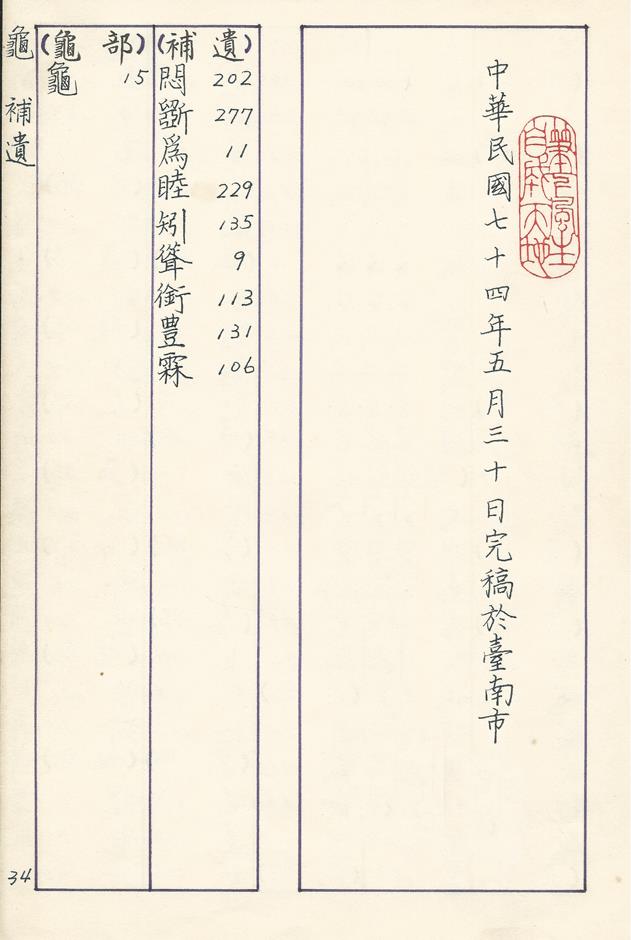 龜 補遺
(龜部)
龜 15
(補遺)
悶 202
斵 277
為 11
睦 229
矧 135
聳 9
銜 113
豊 131
霖 106
中華民國七十四年五月三十日完稿於臺南市
34